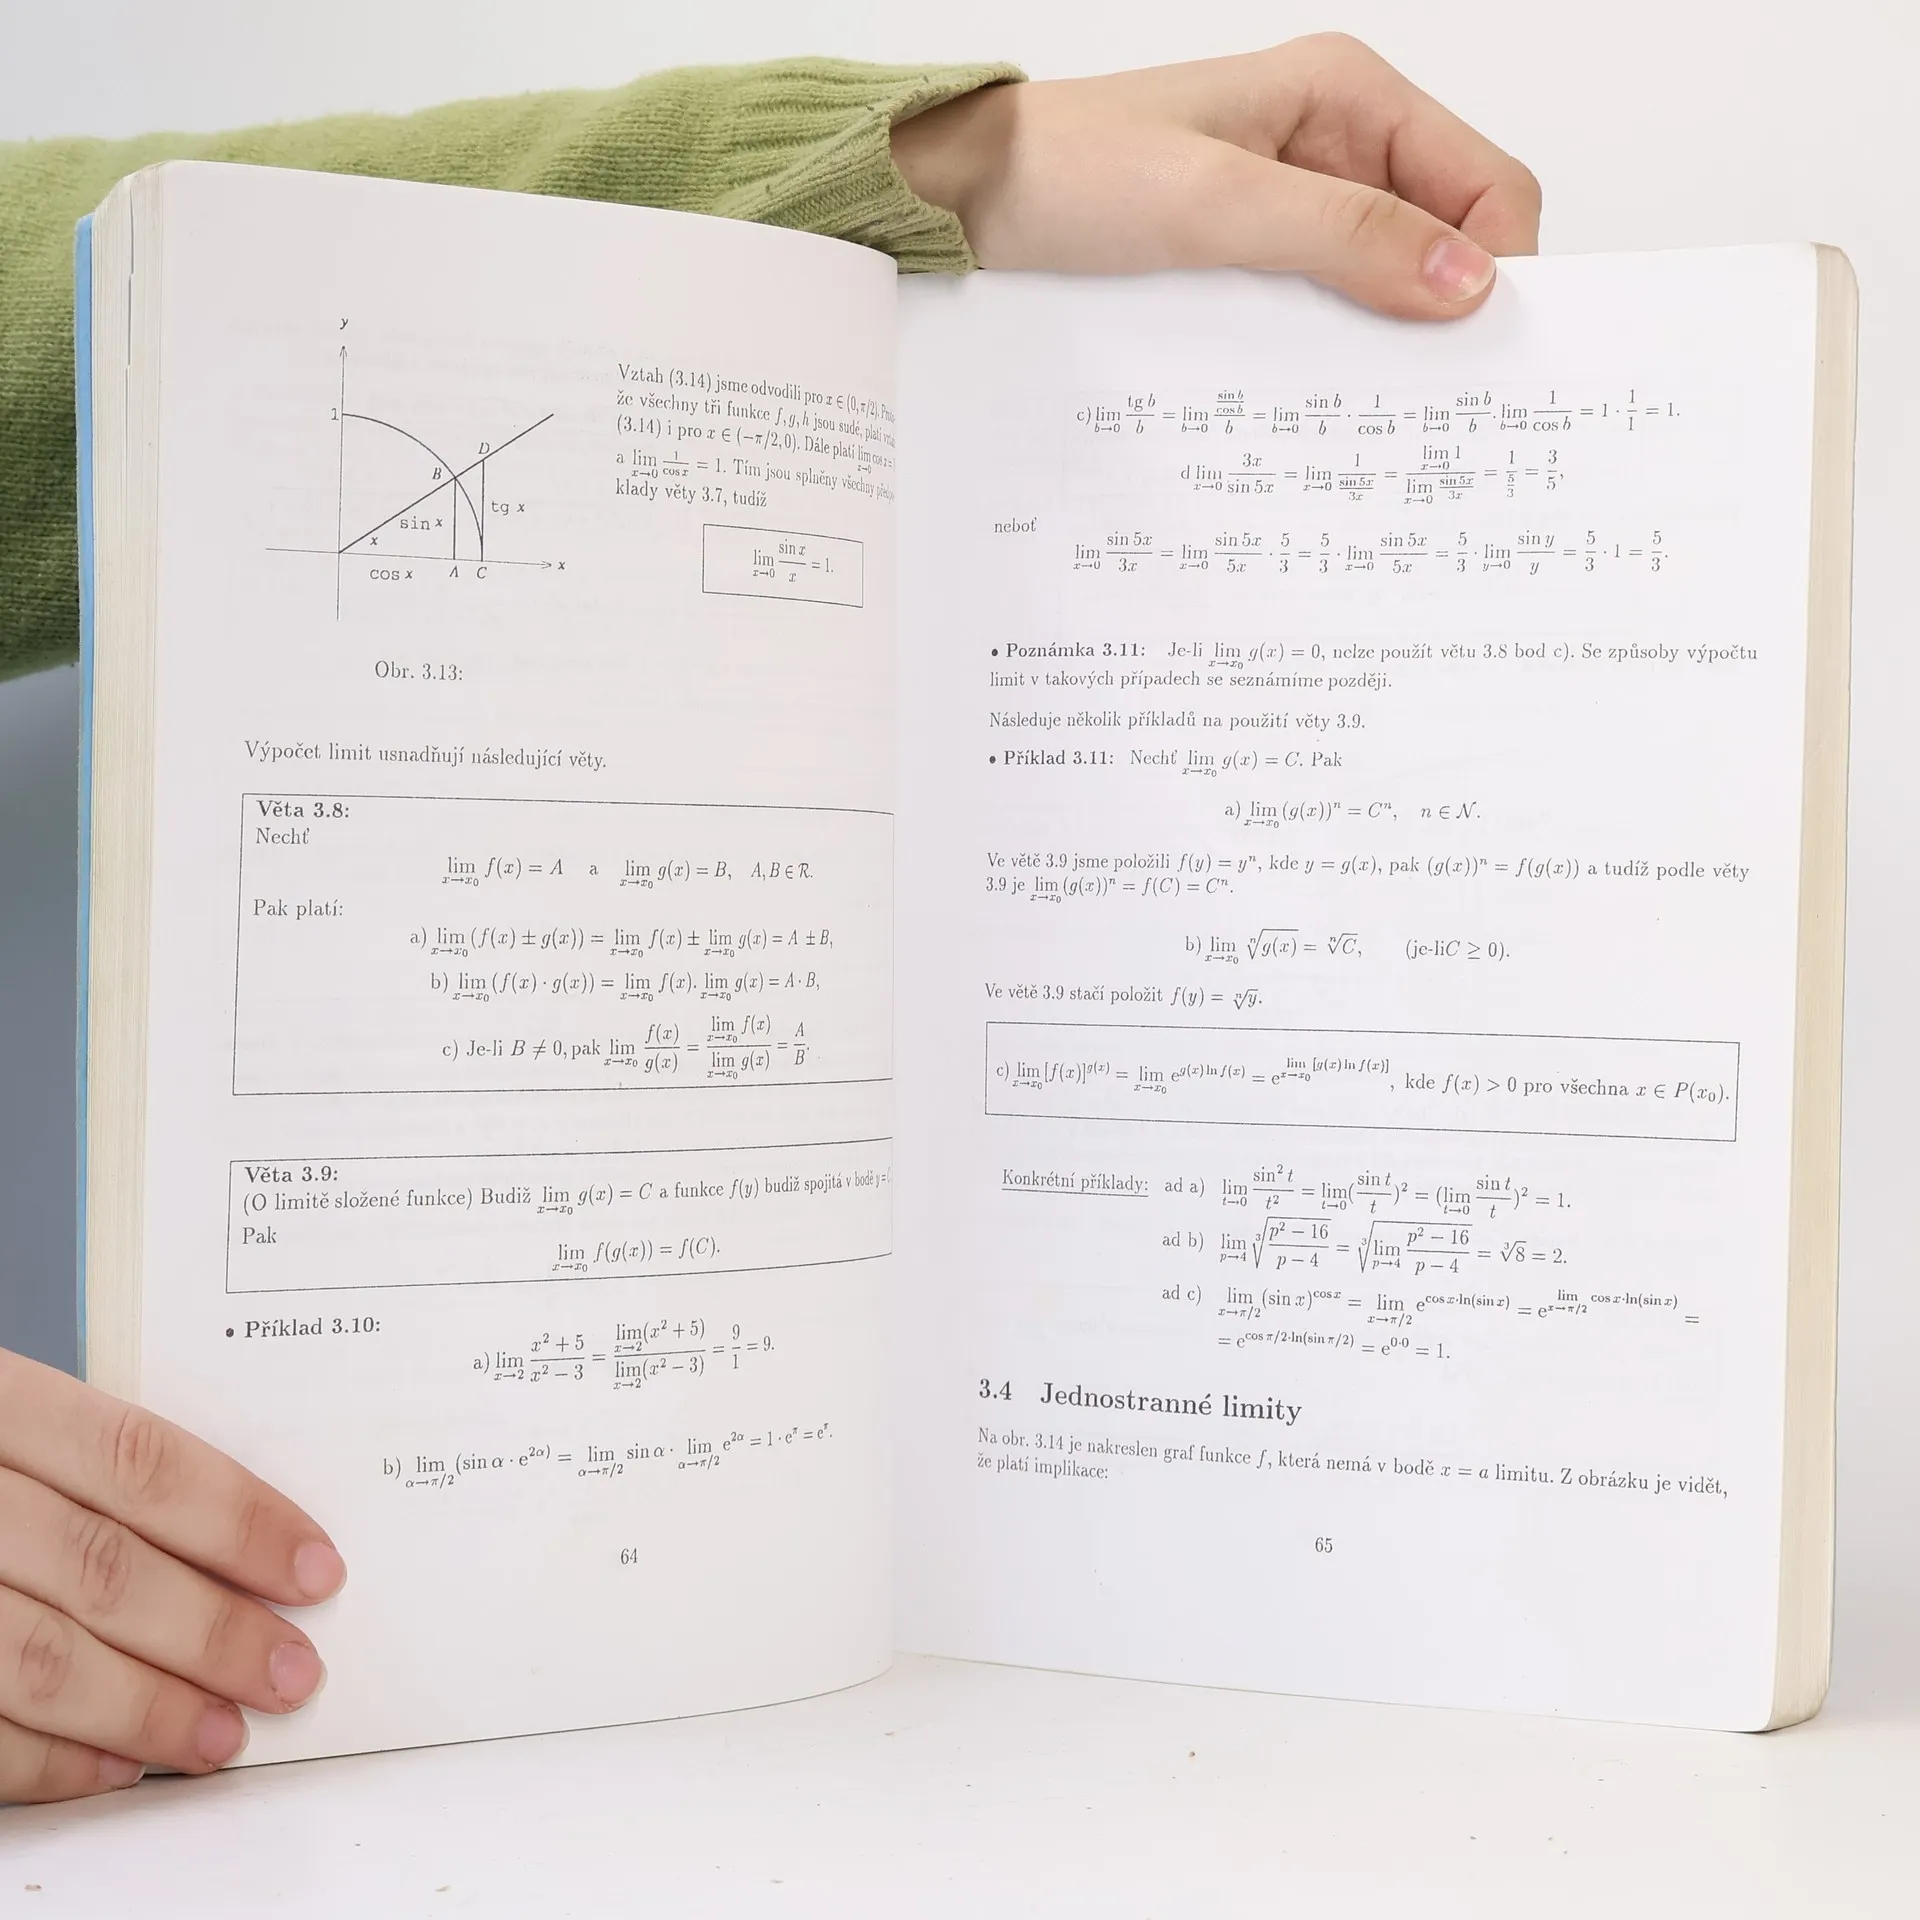 y
1
D
B
tg x
sin x
x
cos x
A C
x
Obr. 3.13:
Vztah (3.14) jsme odvodili pro x ∈ (0, π/2).
že všechny tři funkce f, g, h jsou sudé, platí
(3.14) i pro x ∈ (−π/2, 0). Dále platí lim_{x→0} cos x =
a lim_{x→0} 1/cos x = 1. Tím jsou splněny všechny
klady věty 3.7, tudíž
lim_{x→0} sin x / x = 1.
Výpočet limit usnadňují následující věty.
Věta 3.8:
Nechť
lim_{x→x₀} f(x) = A a lim_{x→x₀} g(x) = B, A, B ∈ R.
Pak platí:
a) lim_{x→x₀} (f(x) ± g(x)) = lim_{x→x₀} f(x) ± lim_{x→x₀} g(x) = A ± B,
b) lim_{x→x₀} (f(x) · g(x)) = lim_{x→x₀} f(x). lim_{x→x₀} g(x) = A · B,
c) Je-li B ≠ 0, pak lim_{x→x₀} f(x)/g(x) = lim_{x→x₀} f(x) / lim_{x→x₀} g(x) = A/B.
Věta 3.9:
(O limitě složené funkce) Budiž lim_{x→x₀} g(x) = C a funkce f(y) budiž spojitá v bodě y =
Pak
lim_{x→x₀} f(g(x)) = f(C).
• Příklad 3.10:
a) lim_{x→2} (x² + 5)/(x² − 3) = lim_{x→2}(x² + 5) / lim_{x→2}(x² − 3) = 9/1 = 9.
b) lim_{α→π/2} (sin α · e^{2α}) = lim_{α→π/2} sin α · lim_{α→π/2} e^{2α} = 1 · e^π = e^π.
64
c) lim_{b→0} tg b / b = lim_{b→0} (sin b / cos b) / b = lim_{b→0} sin b / b · 1 / cos b = lim_{b→0} sin b / b . lim_{b→0} 1 / cos b = 1 · 1/1 = 1.
d lim_{x→0} 3x / sin 5x = lim_{x→0} 1 / (sin 5x / 3x) = lim_{x→0} 1 / lim_{x→0} (sin 5x / 3x) = 1 / (5/3) = 3/5,
neboť
lim_{x→0} sin 5x / 3x = lim_{x→0} sin 5x / 5x · 5/3 = 5/3 · lim_{x→0} sin 5x / 5x = 5/3 · lim_{y→0} sin y / y = 5/3 · 1 = 5/3.
• Poznámka 3.11: Je-li lim_{x→x₀} g(x) = 0, nelze použít větu 3.8 bod c). Se způsoby výpočtu
limit v takových případech se seznámíme později.
Následuje několik příkladů na použití věty 3.9.
• Příklad 3.11: Nechť lim_{x→x₀} g(x) = C. Pak
a) lim_{x→x₀} (g(x))ⁿ = Cⁿ, n ∈ N.
Ve větě 3.9 jsme položili f(y) = yⁿ, kde y = g(x), pak (g(x))ⁿ = f(g(x)) a tudíž podle věty
3.9 je lim_{x→x₀} (g(x))ⁿ = f(C) = Cⁿ.
b) lim_{x→x₀} ⁿ√g(x) = ⁿ√C, (je-liC ≥ 0).
Ve větě 3.9 stačí položit f(y) = ⁿ√y.
c) lim_{x→x₀} [f(x)]^{g(x)} = lim_{x→x₀} e^{g(x) ln f(x)} = e^{lim_{x→x₀} [g(x) ln f(x)]}, kde f(x) > 0 pro všechna x ∈ P(x₀).
Konkrétní příklady: ad a) lim_{t→0} sin² t / t² = lim_{t→0} (sin t / t)² = (lim_{t→0} sin t / t)² = 1.
ad b) lim_{p→4} ³√((p² − 16)/(p − 4)) = ³√(lim_{p→4} (p² − 16)/(p − 4)) = ³√8 = 2.
ad c) lim_{x→π/2} (sin x)^{cos x} = lim_{x→π/2} e^{cos x·ln(sin x)} = e^{lim_{x→π/2} cos x·ln(sin x)} =
= e^{cos π/2·ln(sin π/2)} = e^{0·0} = 1.
3.4 Jednostranné limity
Na obr. 3.14 je nakreslen graf funkce f, která nemá v bodě x = a limitu. Z obrázku je vidět,
že platí implikace:
65